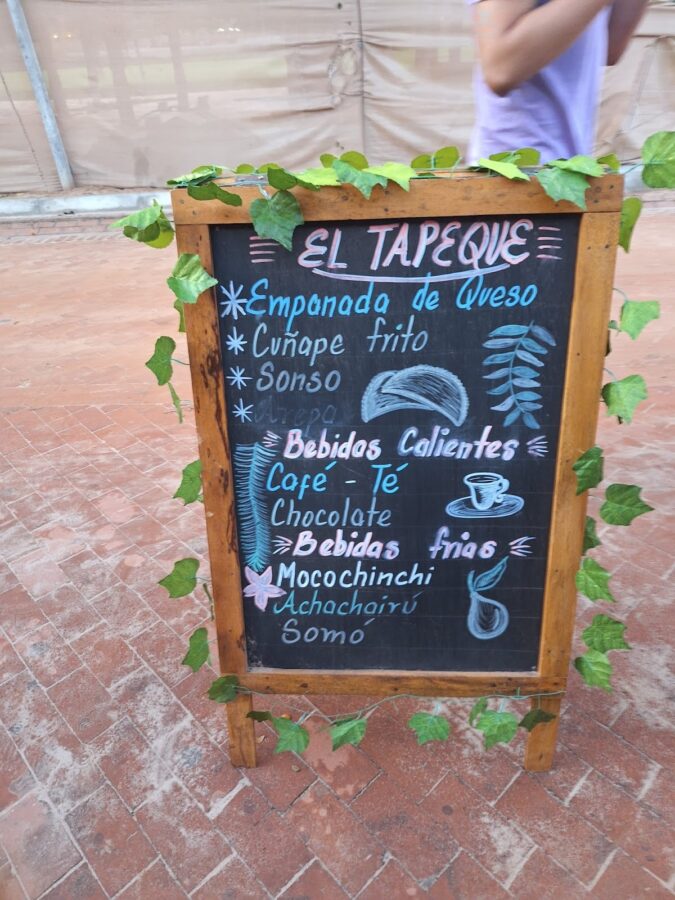 EL TAPEQUE
Empanada de Queso
Cuñape frito
Sonso
Arepa
Bebidas Calientes
Café - Té
Chocolate
Bebidas frias
Mocochinchi
Achachairú
Somó